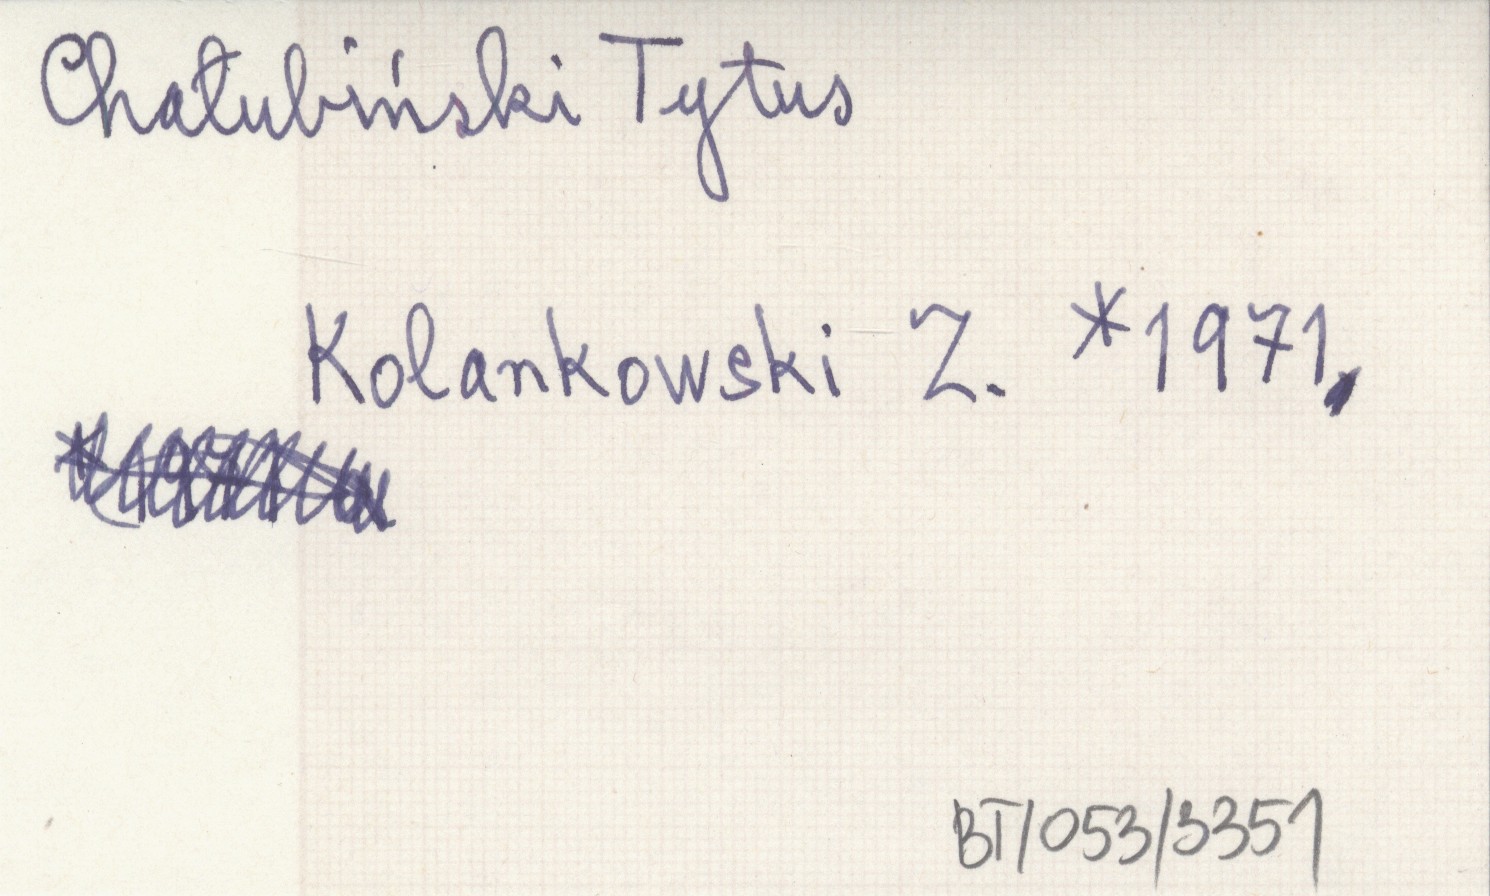 Chałubiński Tytus
Kolankowski Z. *1971,
BT/053/3351